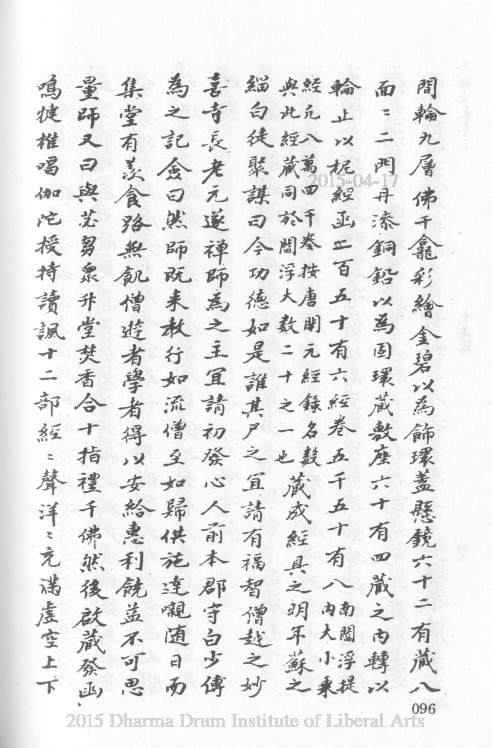 間輪九層佛千龕彩繪金碧以為飾環蓋懸鏡六十二有藏八
面〻二門丹漆銅鉛以為固環藏敷座六十有四藏之內轉以
輪止以柅經函二百五十有六經卷五千五十有八
南閻浮提
內大小乘
經元八萬四千卷按唐開元經錄名數
與此經藏同於閻浮大數二十之一也
藏成經具之明年蘇之
緇白徒聚謀曰今功德如是誰其尸之宜請有福智僧越之妙
喜寺長老元遂禪師為之主宜請初發心人前本郡守白少傅
為之記僉曰然師既來教行如流僧至如歸供施達嚫随日而
集堂有羨食路無飢僧遊者學者得以安給惠利饒益不可思
量師又曰與苾芻衆升堂焚香合十指禮千佛然後啟藏發函
鳴揵椎唱伽陀授持讀諷十二部經〻聲洋〻充滿虛空上下
096
2015-04-17
2015 Dharma Drum Institute of Liberal Arts